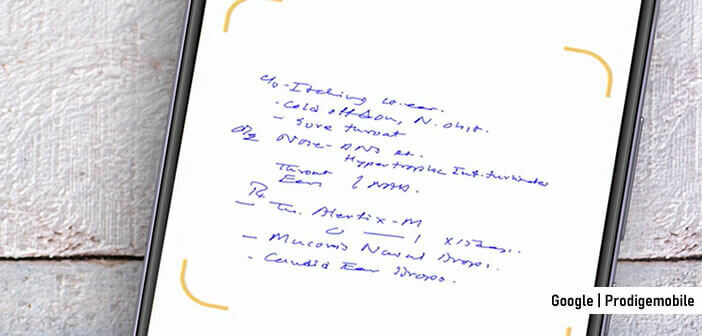 c/o - Itching in ear.
- Cold off & on, N. obst.
- Sore throat
O/E Nose - DNS Rt.
Hypertrophic Inf. turbinates
Throat
Ears } NAD.
Rx
- Tab. Alertix-M
0 — 1 x 15 days.
- Mucomis Nasal Drops.
- Candid Ear Drops.
Google | Prodigemobile